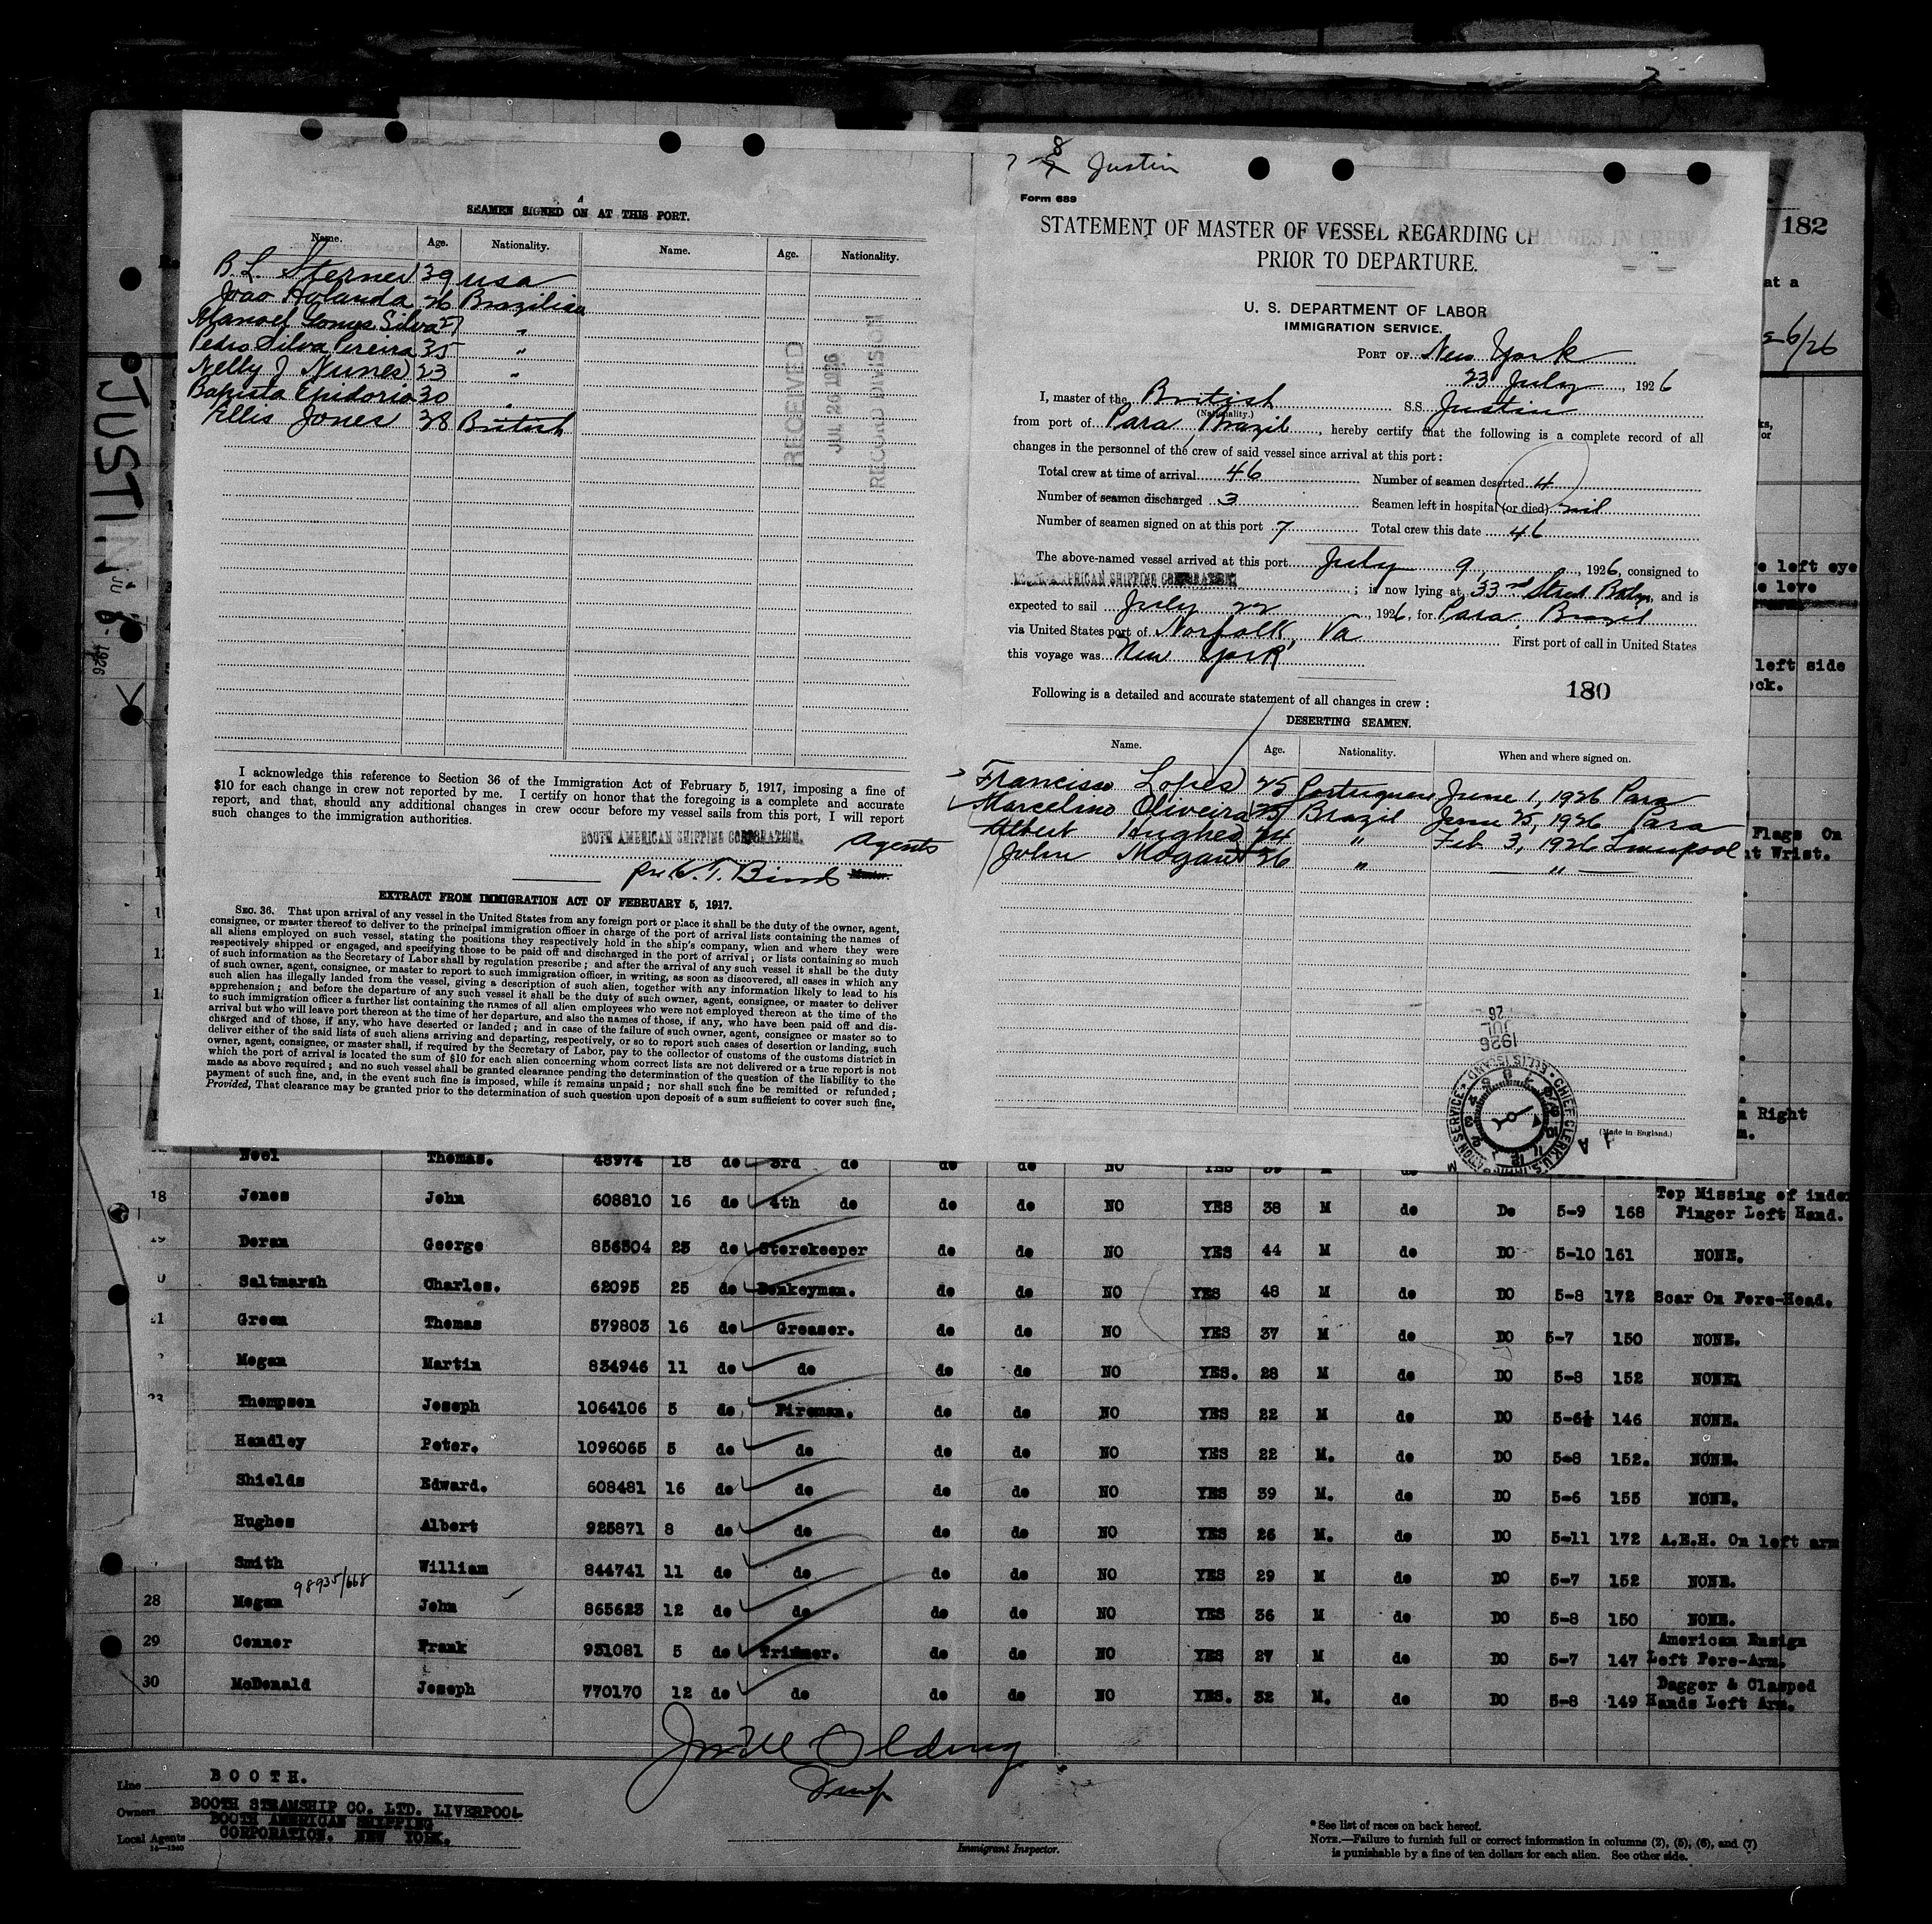 2
182
at a
6/26
JUSTIN
1926
SEAMEN SIGNED ON AT THIS PORT.
Name. Age. Nationality. Name. Age. Nationality.
B. L. Sterner 39 USA
Joao Holanda 26 Brazilian
Manoel Gomes Silva 27 "
Pedro Silva Pereira 35 "
Nelly J Nunes 23 "
Bapista Epidorio 30 "
Ellis Jones 38 British
RECEIVED
JUL 26 1926
RECORD DIVISION
I acknowledge this reference to Section 36 of the Immigration Act of February 5, 1917, imposing a fine of
$10 for each change in crew not reported by me. I certify on honor that the foregoing is a complete and accurate
report, and that, should any additional changes in crew occur before my vessel sails from this port, I will report
such changes to the immigration authorities.
BOOTH AMERICAN SHIPPING CORPORATION. Agents
Master.
EXTRACT FROM IMMIGRATION ACT OF FEBRUARY 5, 1917.
SEC. 36. That upon arrival of any vessel in the United States from any foreign port or place it shall be the duty of the owner, agent,
consignee, or master thereof to deliver to the principal immigration officer in charge of the port of arrival lists containing the names of
all aliens employed on such vessel, stating the positions they respectively hold in the ship's company, when and where they were
respectively shipped or engaged, and specifying those to be paid off and discharged in the port of arrival; or lists containing so much
of such information as the Secretary of Labor shall by regulation prescribe; and after the arrival of any such vessel it shall be the duty
of such owner, agent, consignee, or master to report to such immigration officer, in writing, as soon as discovered, all cases in which any
such alien has illegally landed from the vessel, giving a description of such alien, together with any information likely to lead to his
apprehension; and before the departure of any such vessel it shall be the duty of such owner, agent, consignee, or master to deliver
to such immigration officer a further list containing the names of all alien employees who were not employed thereon at the time of the
arrival but who will leave port thereon at the time of her departure, and also the names of those, if any, who have been paid off and dis-
charged and of those, if any, who have deserted or landed; and in case of the failure of such owner, agent, consignee or master so to
deliver either of the said lists of such aliens arriving and departing, respectively, or so to report such cases of desertion or landing, such
owner, agent, consignee, or master shall, if required by the Secretary of Labor, pay to the collector of customs of the customs district in
which the port of arrival is located the sum of $10 for each alien concerning whom correct lists are not delivered or a true report is not
made as above required; and no such vessel shall be granted clearance pending the determination of the question of the liability to the
payment of such fine, and, in the event such fine is imposed, while it remains unpaid; nor shall such fine be remitted or refunded;
Provided, That clearance may be granted prior to the determination of such question upon deposit of a sum sufficient to cover such fine.
8
Justin
Form 689
STATEMENT OF MASTER OF VESSEL REGARDING CHANGES IN CREW
PRIOR TO DEPARTURE.
U. S. DEPARTMENT OF LABOR
IMMIGRATION SERVICE.
PORT OF New York
23 July, 1926
I, master of the British S.S. Justin
(Nationality.)
from port of Para, Brazil, hereby certify that the following is a complete record of all
changes in the personnel of the crew of said vessel since arrival at this port:
Total crew at time of arrival 46 Number of seamen deserted 4
Number of seamen discharged 3 Seamen left in hospital (or died) nil
Number of seamen signed on at this port 7 Total crew this date 46
The above-named vessel arrived at this port July 9, 1926, consigned to
BOOTH AMERICAN SHIPPING CORPORATION; is now lying at 33rd Street Bklyn, and is
expected to sail July 22, 1926, for Para Brazil
via United States port of Norfolk, Va First port of call in United States
this voyage was New York
180
Following is a detailed and accurate statement of all changes in crew:
DESERTING SEAMEN.
Name. Age. Nationality. When and where signed on.
Francisco Lopes 25 Portuguese June 1, 1926 Para
Marcelino Oliveira 25 Brazil June 25, 1926 Para
Albert Hughes 24 " Feb. 3, 1926 Liverpool
John Mogan 36 " "
JUL 26 1926
CHIEF CLERK, U.S. IMMIGRATION SERVICE ELLIS ISLAND
(Made in England.)
left eye
left side
Flags On
Wrist.
Right
Noel Thomas. 48974 18 do 3rd do do do NO YES 39 M do
18 Jones John 608810 16 do 4th do do do NO YES 38 M do Do 5-9 168 Top Missing of index
Finger Left Hand.
19 Doran George 856504 23 do Storekeeper do do NO YES 44 M do DO 5-10 161 NONE.
Saltmarsh Charles. 62095 25 do Donkeyman. do do NO YES 48 M do DO 5-8 172 Scar On Fore-Head.
21 Green Thomas 579803 16 do Greaser. do do NO YES 37 M do DO 5-7 150 NONE.
Mogan Martin 834946 11 do do do do NO YES. 28 M do DO 5-8 152 NONE.
23 Thompson Joseph 1064106 5 do Fireman. do do NO YES 22 M do DO 5-6½ 146 NONE.
Handley Peter. 1096065 5 do do do do NO YES 22 M. do DO 5-8 152. NONE.
Shields Edward. 608481 16 do do do do NO YES 39 M. do DO 5-6 155 NONE.
Hughes Albert 925871 8 do do do do NO YES 26 M. do DO 5-11 172 A.E.H. On left arm
Smith William 844741 11 do do do do NO YES 29 M do DO 5-7 152 NONE.
98935/668
28 Mogan John 865623 12 do do do do NO YES 36 M do DO 5-8 150 NONE.
29 Conner Frank 931081 5 do Trimmer. do do NO YES 27 M do DO 5-7 147 American Ensign
Left Fore-Arm.
30 McDonald Joseph 770170 12 do do do do NO YES. 32 M. do DO 5-8 149 Dagger & Clasped
Hands Left Arm.
Line BOOTH.
Owners BOOTH STEAMSHIP CO. LTD. LIVERPOOL
Local Agents BOOTH AMERICAN SHIPPING
CORPORATION. NEW YORK.
Immigrant Inspector.
* See list of races on back hereof.
NOTE.—Failure to furnish full or correct information in columns (2), (5), (6), and (7)
is punishable by a fine of ten dollars for each alien. See other side.